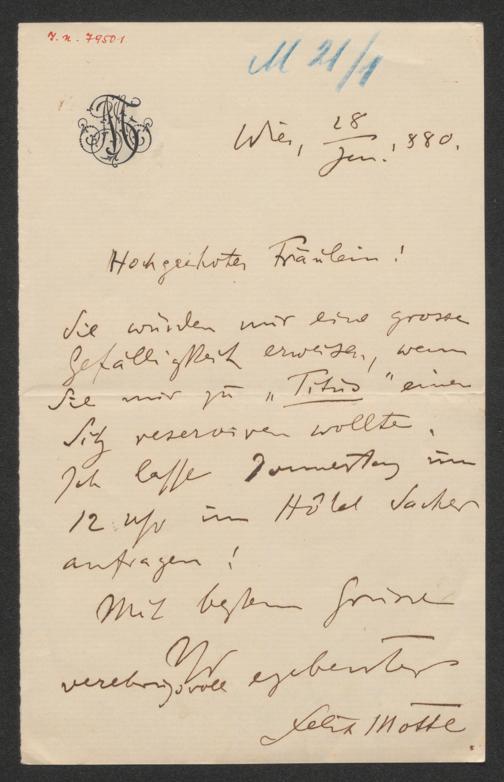 I.N. 79501
M 21/1
Wien, 28 Jan. 880.
Hochgeehrtes Fräulein!
Sie würden mir eine grosse
Gefälligkeit erweisen, wenn
Sie mir zu „Titus" einen
Sitz reserviren wollte.
Ich lasse Donnerstag um
12 Uhr im Hôtel Sacher
anfragen!
Mit bestem Grusse
Ihr
verehrungsvoll ergebenster
Felix Mottl